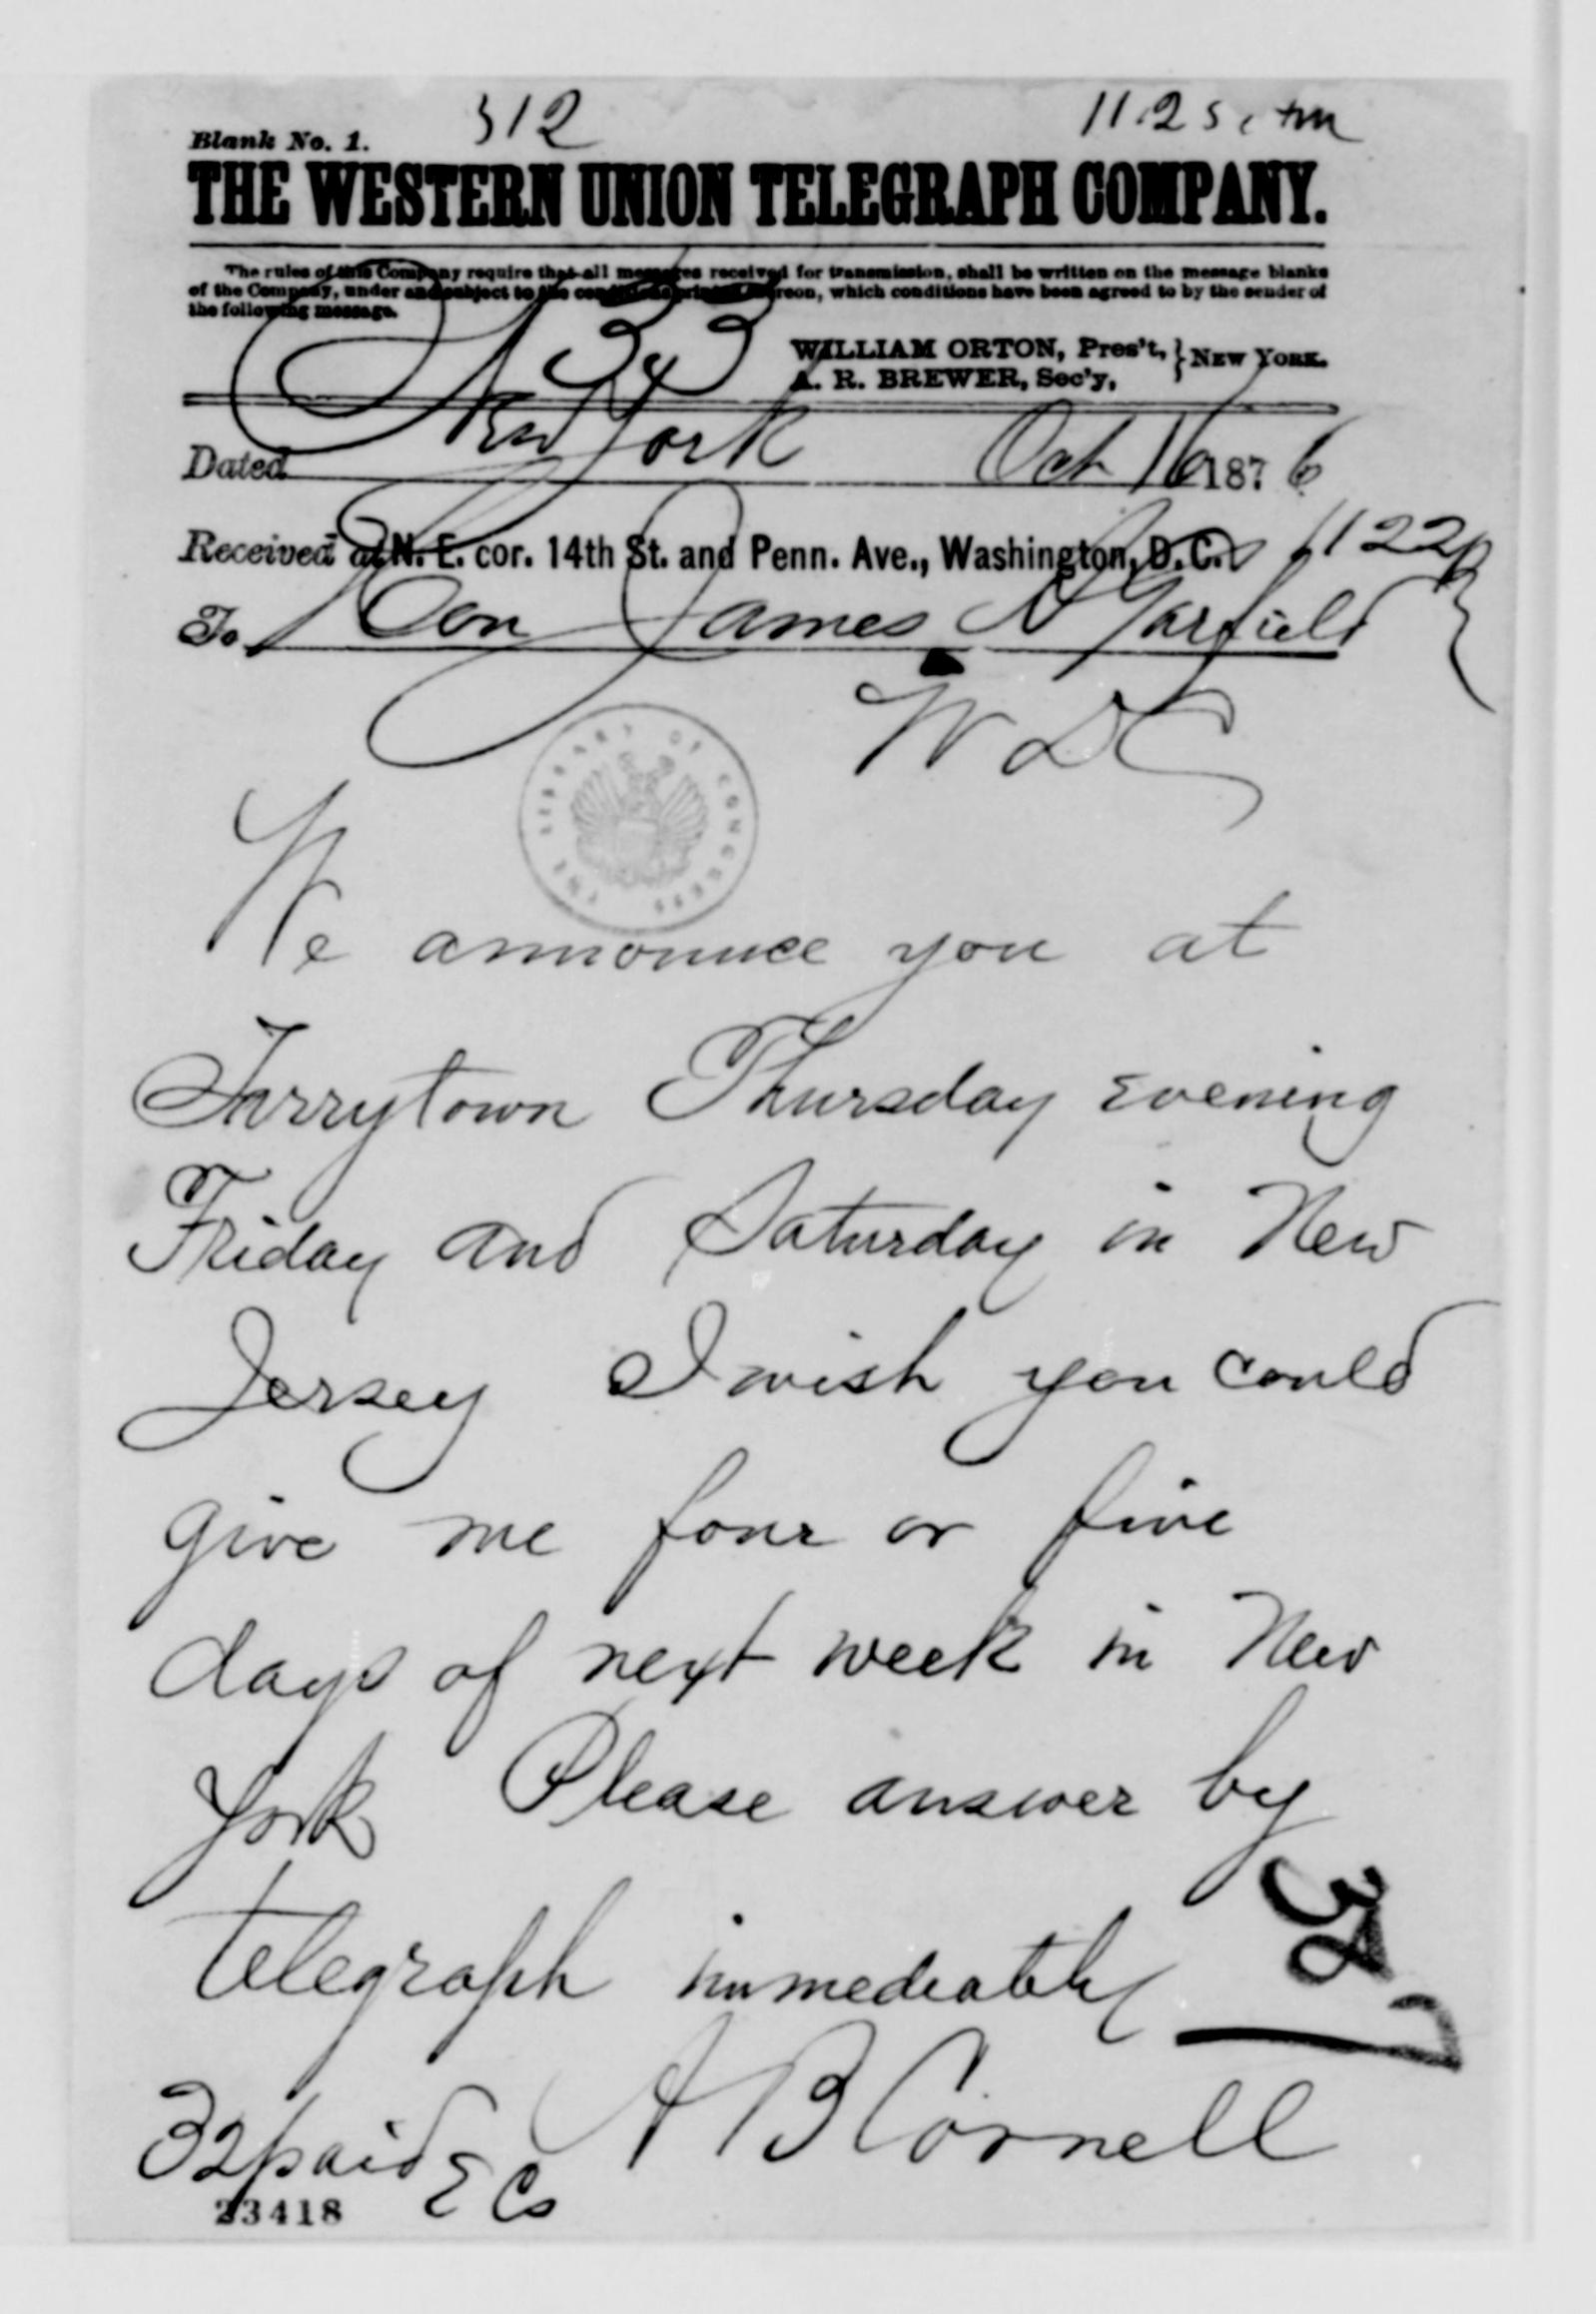 312 11.25
Blank No. 1.
THE WESTERN UNION TELEGRAPH COMPANY.
The rules of this Company require that all messages received for transmission, shall be written on the message blanks
of the Company, under and subject to the conditions printed thereon, which conditions have been agreed to by the sender of
the following message.
33
WILLIAM ORTON, Pres't, } NEW YORK.
A. R. BREWER, Sec'y,
Dated New York Oct 16 1876
Received at N. E. cor. 14th St. and Penn. Ave., Washington, D.C. 1122p
To Hon James A Garfield
W DC
THE LIBRARY OF CONGRESS
We announce you at
Tarrytown Thursday evening
Friday and Saturday in New
Jersey I wish you could
give me four or five
days of next week in New
York Please answer by
telegraph immediately
A B Cornell
32 paid
23418